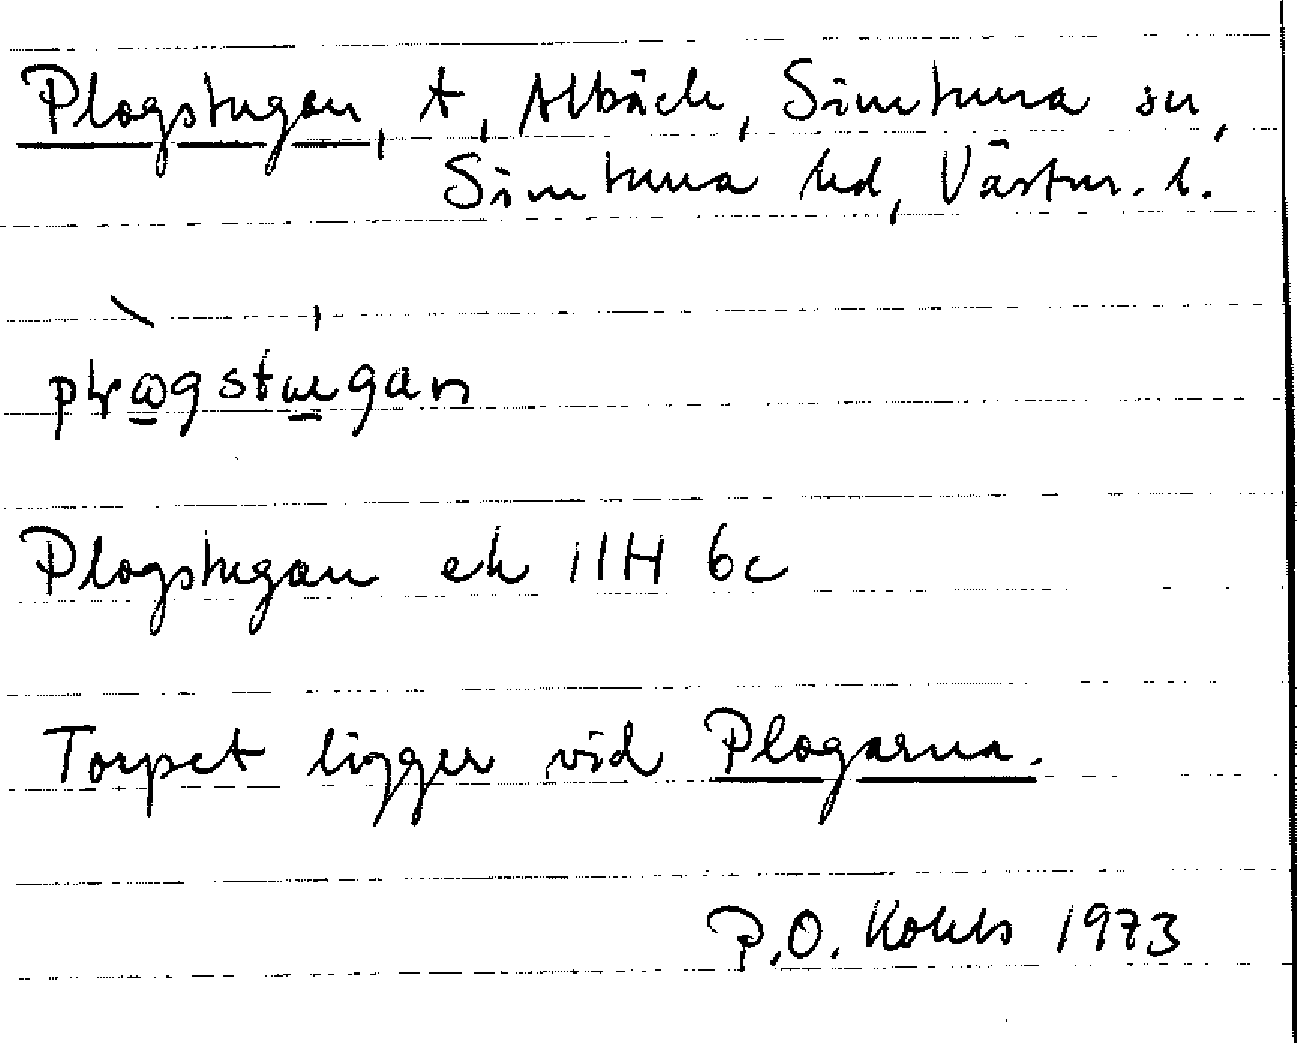 Plogstugan, t, Albäck, Simtuna sn,
Simtuna hd, Västm. l.
Plogstugan ek 11H 6c
Torpet ligger vid Plogarna.
P.O. 1973